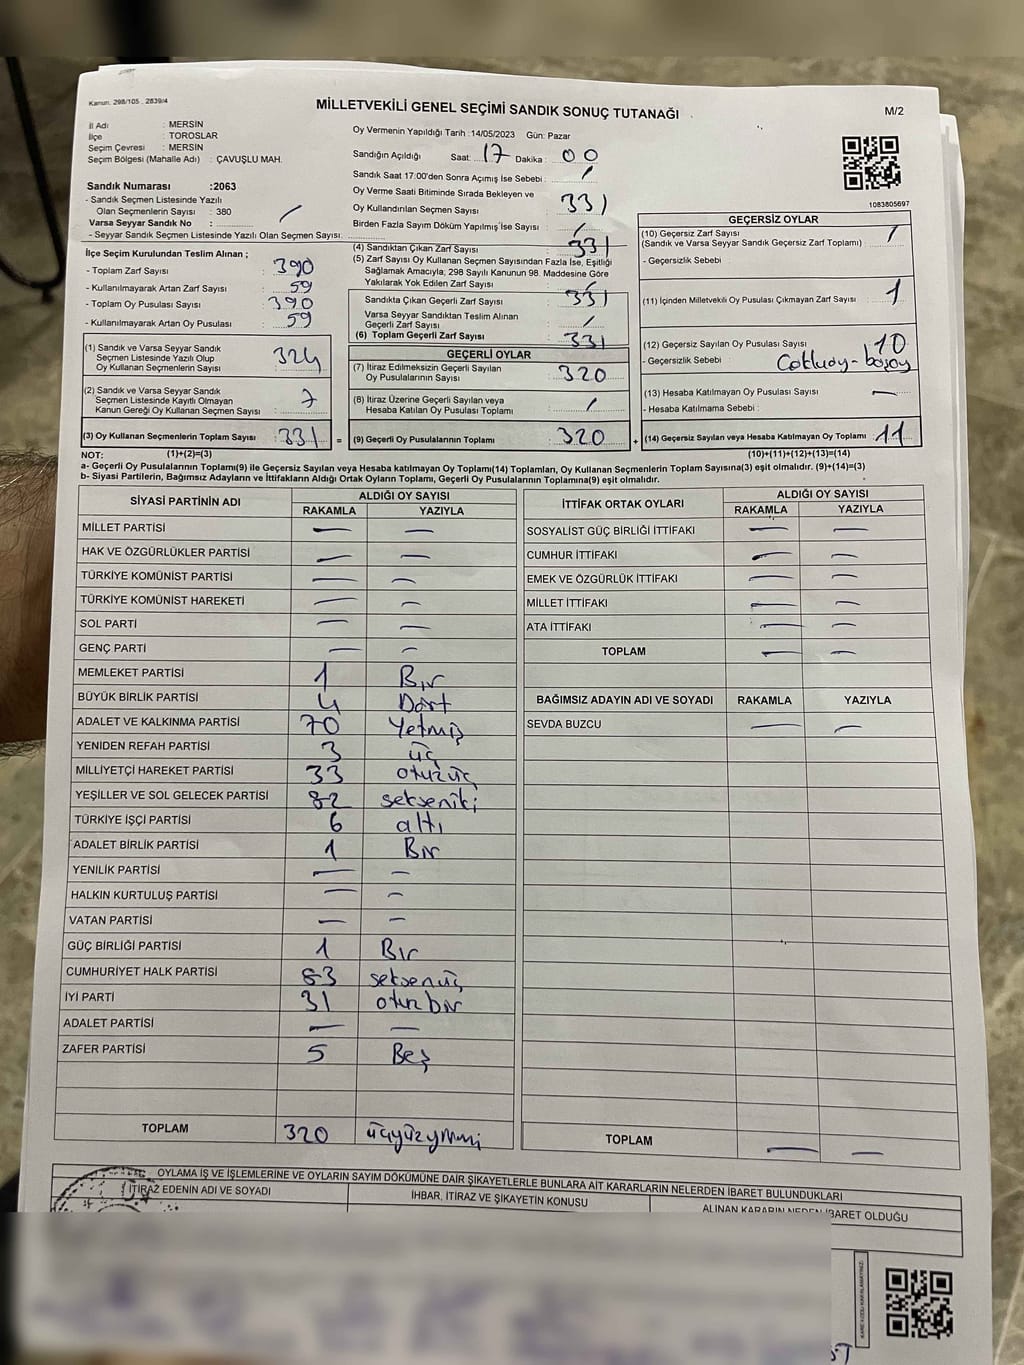 Kanun. 298/105 , 2839/4
MİLLETVEKİLİ GENEL SEÇİMİ SANDIK SONUÇ TUTANAĞI
M/2
İl Adı : MERSİN
İlçe : TOROSLAR
Seçim Çevresi : MERSİN
Seçim Bölgesi (Mahalle Adı) : ÇAVUŞLU MAH.
Sandık Numarası :2063
- Sandık Seçmen Listesinde Yazılı
Olan Seçmenlerin Sayısı : 380
Varsa Seyyar Sandık No : /
- Seyyar Sandık Seçmen Listesinde Yazılı Olan Seçmen Sayısı.
İlçe Seçim Kurulundan Teslim Alınan ;
- Toplam Zarf Sayısı : 390
- Kullanılmayarak Artan Zarf Sayısı : 59
- Toplam Oy Pusulası Sayısı : 390
- Kullanılmayarak Artan Oy Pusulası : 59
(1) Sandık ve Varsa Seyyar Sandık
Seçmen Listesinde Yazılı Olup
Oy Kullanan Seçmenlerin Sayısı : 324
(2) Sandık ve Varsa Seyyar Sandık
Seçmen Listesinde Kayıtlı Olmayan
Kanun Gereği Oy Kullanan Seçmen Sayısı : 7
(3) Oy Kullanan Seçmenlerin Toplam Sayısı : 331 =
Oy Vermenin Yapıldığı Tarih :14/05/2023 Gün: Pazar
Sandığın Açıldığı Saat: 17 Dakika : 00
Sandık Saat 17:00'den Sonra Açılmış İse Sebebi : /
Oy Verme Saati Bitiminde Sırada Bekleyen ve
Oy Kullandırılan Seçmen Sayısı : 331
Birden Fazla Sayım Döküm Yapılmış İse Sayısı : /
(4) Sandıktan Çıkan Zarf Sayısı : 331
(5) Zarf Sayısı Oy Kullanan Seçmen Sayısından Fazla İse, Eşitliği
Sağlamak Amacıyla; 298 Sayılı Kanunun 98. Maddesine Göre
Yakılarak Yok Edilen Zarf Sayısı : /
Sandıkta Çıkan Geçerli Zarf Sayısı : 331
Varsa Seyyar Sandıktan Teslim Alınan
Geçerli Zarf Sayısı : /
(6) Toplam Geçerli Zarf Sayısı : 331
GEÇERLİ OYLAR
(7) İtiraz Edilmeksizin Geçerli Sayılan
Oy Pusulalarının Sayısı : 320
(8) İtiraz Üzerine Geçerli Sayılan veya
Hesaba Katılan Oy Pusulası Toplamı : /
(9) Geçerli Oy Pusulalarının Toplamı : 320 +
1083805697
GEÇERSİZ OYLAR
(10) Geçersiz Zarf Sayısı : /
(Sandık ve Varsa Seyyar Sandık Geçersiz Zarf Toplamı)
- Geçersizlik Sebebi :
(11) İçinden Milletvekili Oy Pusulası Çıkmayan Zarf Sayısı : 1
(12) Geçersiz Sayılan Oy Pusulası Sayısı : 10
- Geçersizlik Sebebi :
(13) Hesaba Katılmayan Oy Pusulası Sayısı : —
- Hesaba Katılmama Sebebi :
(14) Geçersiz Sayılan veya Hesaba Katılmayan Oy Toplamı : 11
NOT: (1)+(2)=(3) (10)+(11)+(12)+(13)=(14)
a- Geçerli Oy Pusulalarının Toplamı(9) ile Geçersiz Sayılan veya Hesaba katılmayan Oy Toplamı(14) Toplamları, Oy Kullanan Seçmenlerin Toplam Sayısına(3) eşit olmalıdır. (9)+(14)=(3)
b- Siyasi Partilerin, Bağımsız Adayların ve İttifakların Aldığı Ortak Oyların Toplamı, Geçerli Oy Pusulalarının Toplamına(9) eşit olmalıdır.
SİYASİ PARTİNİN ADI ALDIĞI OY SAYISI
RAKAMLA YAZIYLA
MİLLET PARTİSİ — —
HAK VE ÖZGÜRLÜKLER PARTİSİ — —
TÜRKİYE KOMÜNİST PARTİSİ — —
TÜRKİYE KOMÜNİST HAREKETİ — —
SOL PARTİ — —
GENÇ PARTİ — —
MEMLEKET PARTİSİ 1 Bir
BÜYÜK BİRLİK PARTİSİ 4 Dört
ADALET VE KALKINMA PARTİSİ 70 Yetmiş
YENİDEN REFAH PARTİSİ 3 üç
MİLLİYETÇİ HAREKET PARTİSİ 33 otuzüç
YEŞİLLER VE SOL GELECEK PARTİSİ 82 sekseniki
TÜRKİYE İŞÇİ PARTİSİ 6 altı
ADALET BİRLİK PARTİSİ 1 Bir
YENİLİK PARTİSİ — —
HALKIN KURTULUŞ PARTİSİ — —
VATAN PARTİSİ — —
GÜÇ BİRLİĞİ PARTİSİ 1 Bir
CUMHURİYET HALK PARTİSİ 83 seksenüç
İYİ PARTİ 31 otuzbir
ADALET PARTİSİ — —
ZAFER PARTİSİ 5 Beş
TOPLAM 320 üçyüzyirmi
İTTİFAK ORTAK OYLARI ALDIĞI OY SAYISI
RAKAMLA YAZIYLA
SOSYALİST GÜÇ BİRLİĞİ İTTİFAKI — —
CUMHUR İTTİFAKI — —
EMEK VE ÖZGÜRLÜK İTTİFAKI — —
MİLLET İTTİFAKI — —
ATA İTTİFAKI — —
TOPLAM — —
BAĞIMSIZ ADAYIN ADI VE SOYADI RAKAMLA YAZIYLA
SEVDA BUZCU — —
TOPLAM — —
OYLAMA İŞ VE İŞLEMLERİNE VE OYLARIN SAYIM DÖKÜMÜNE DAİR ŞİKAYETLERLE BUNLARA AİT KARARLARIN NELERDEN İBARET BULUNDUKLARI
İTİRAZ EDENİN ADI VE SOYADI İHBAR, İTİRAZ VE ŞİKAYETİN KONUSU ALINAN KARARIN NEDEN İBARET OLDUĞU